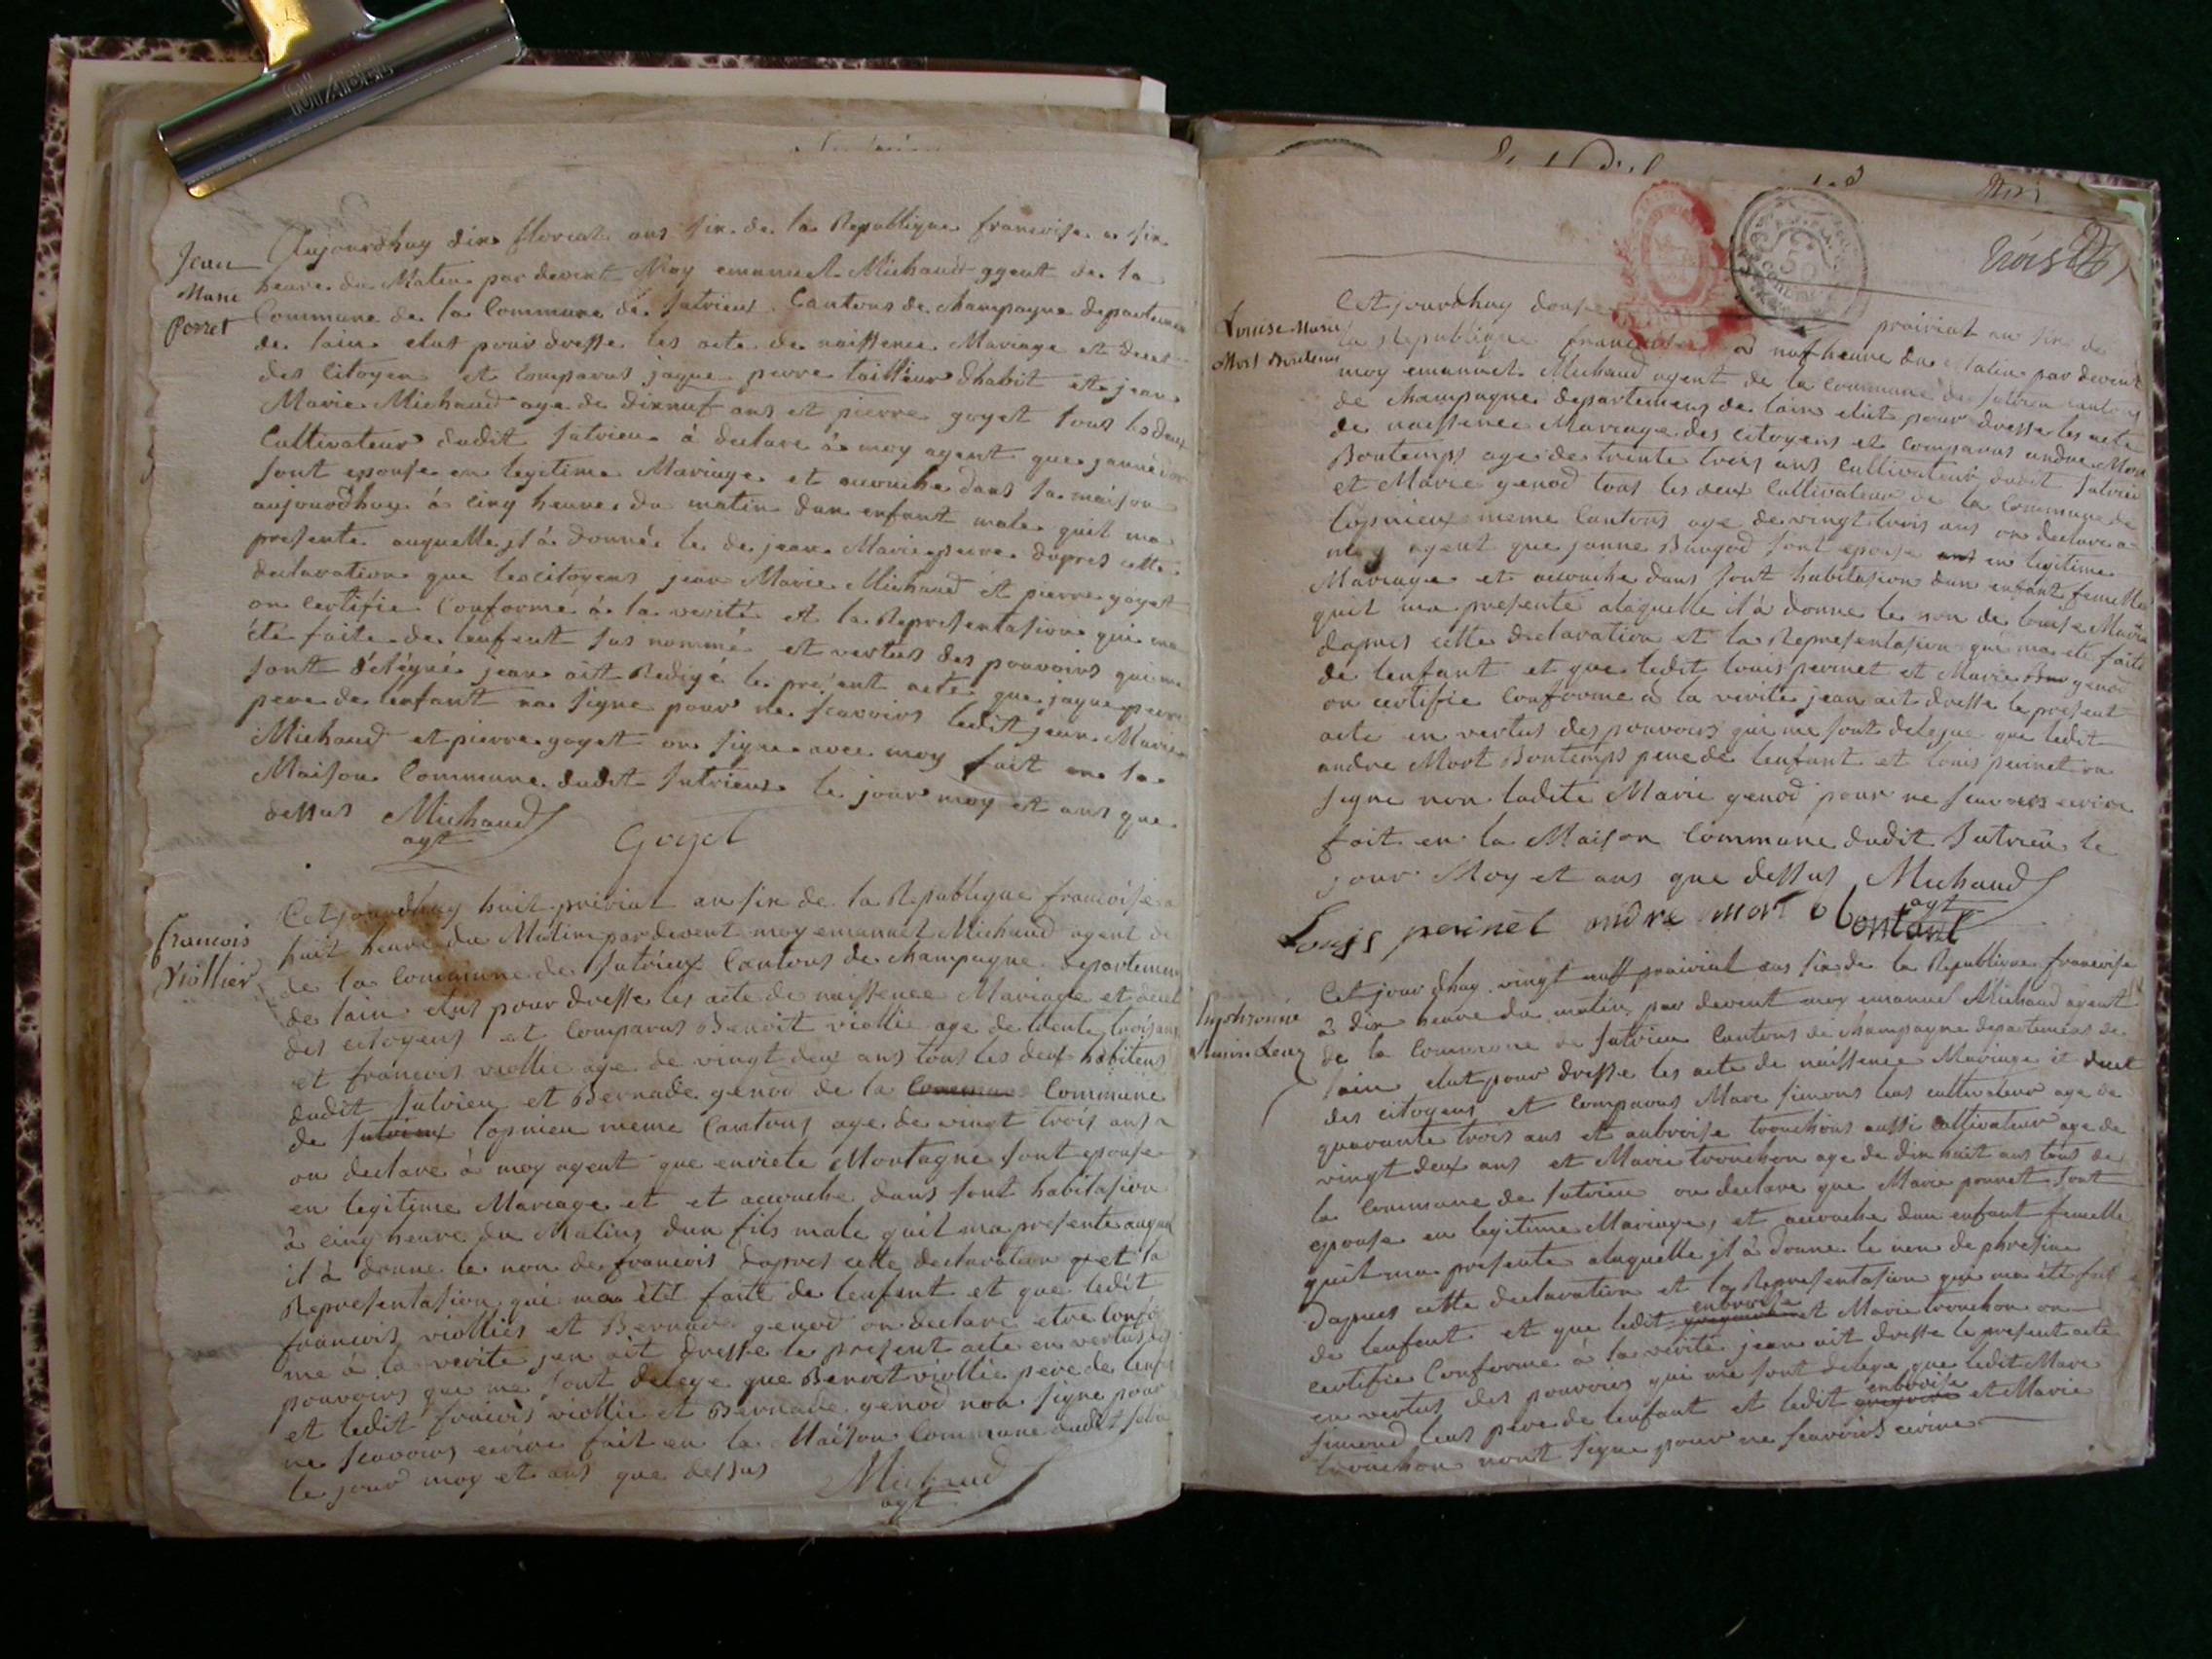 Jean
Marie
Perret
Aujourdhuy dix floreal ans six de la Republique francoise a six
heure du Matin par devent Moy emanuel Michaud agent de la
Commune de la Commune de Sutrieux Cantons de Champagne departemen
de lain elus pour dresse les acte de naissence Mariage et decet
des Citoyen et Comparus jaque perre tailleur dhabit et jean
Marie Michaud age de dixneuf ans et pierre goyet tous les deux
Cultivateur dudit Sutrieu à declare à moy agent que janne
sont epouse en legitime Mariage et accouche dans sa maison
aujourdhuy à cinq heure du matin dun enfant male quil ma
presente auquelle il à donné le de jean Marie perre dapres cette
declaration que les citoyens jean Marie Michaud et pierre goyet
on Certifie Conforme à la verité et la Representasion qui ma
été faite de lenfent sus nommé et vertus des pouvoirs qui me
sont délégué jean ait Redigé le présent acte que jaque perre
pere de lenfant na signe pour ne scavoirs ledit jean Marie
Michaud et pierre goyet on signe avec moy fait en la
Maison Commune dudit Sutrieux le jour moy et ans que
dessus Michaud
agt
Goyet
francois
Viollier
Cet jourdhuy huit pririal an six de la Republique francoise a
huit heure du Matin par devent moy emanuel Michaud agent de
de la Commune de Sutrieux Cantons de Champagne departemen
de lain elus pour dresse les acte de naissence Mariage et decet
des citoyens et Comparus Benoit viollie age de trente trois ans
et francois viollie age de vingt deux ans tous les deux habitens
dudit Sutrieu et Bernade genod de la Commune Commune
de Sutrieux lopnieu meme Cantons age de vingt trois ans
on declare à moy agent que enriete Montagne sont epouse
en legitime Mariage et et accouche dans sont habitasion
à cinq heure du Matins dun fils male quil ma presente auquel
il à donne le non de francois dapres cette declaration et la
Representasion qui ma été faite de lenfent et que ledit
francois viollies et Bernade genod on declare etre confor
me à la verite jen ait dresse le present acte en vertus des
pouvoirs qui me sont delege que Benoit viollie pere de lenfe
et ledit francois viollie et Bernade genod non signe pour
ne scavoirs ecrire fait en la Maison Commune dudit Sutri
le jour moy et ans que dessus
Michaud
agt
trois
Louise Marie
Mort Bontems
Cet jourdhuy douse prairial an six de
la Republique francoise a nuf heure du Matin par devent
moy emanuel Michaud agent de la Commune de Sutrieu cantons
de Champagne departemens de lain elut pour dresse les acte
de naissence Mariage des citoyens et Comparus andre Mort
Bontemps age de trente trois ans Cultivateur dudit Sutrieu
et Marie genod tous les deux Cultivateur de la Commune de
lopnieux meme Cantons age de vingt trois ans on declare a
moy agent que janne Baugod sont epouse ant en legitime
Mariage et accouche dans sont habitasion dun enfant femelle
quil ma presente alaquelle il à donne le non de louise Marie
dapres cette declaration et la Representasion qui ma ete faite
de lenfent et que ledit louis perinet et Marie Bau genod
on certifie Conforme à la verite jean ait dresse le present
acte en vertus des pouvoirs qui me sont delegue que ledit
andre Mort Bontemps pere de lenfant et louis perinet on
signe non ladite Marie genod pour ne scavoirs ecrire
fait en la Maison Commune dudit Sutrieu le
jour Moy et ans que dessus Michaud
agt
Louis perinet andre mort Bontant
Simon Lenz
Cet jourdhuy vingt nuff prairial ans six de la Republique francoise
à dix heure du matin par devent moy emanuel Michaud agent
de la Commune de Sutrieu Cantons de Champagne departemens de
lain elut pour dresse les acte de naissence Mariage et decet
des citoyens et Comparus Marc simons lens cultivateur age de
quarante trois ans et anbroise trouchons aussi Cultivateur age de
vingt deux ans et Marie trouchon age de dix huit ans tous de
la Commune de Sutrieu on declare que Marie ponnet sont
epouse en legitime Mariage, et accouche dun enfant femelle
quil ma presente alaquelle il à donne le non de phrosine
dapres cette declaration et la Representasion qui ma été fait
de lenfent et que ledit enbroise et Marie trouchon on
Certifie Conforme à la verite jean ait dresse le present acte
en vertus des pouvoirs qui me sont delege que ledit Marc
simond lens pere de lenfant et ledit enbroise et Marie
trouchon nont signe pour ne scavoirs ecrire